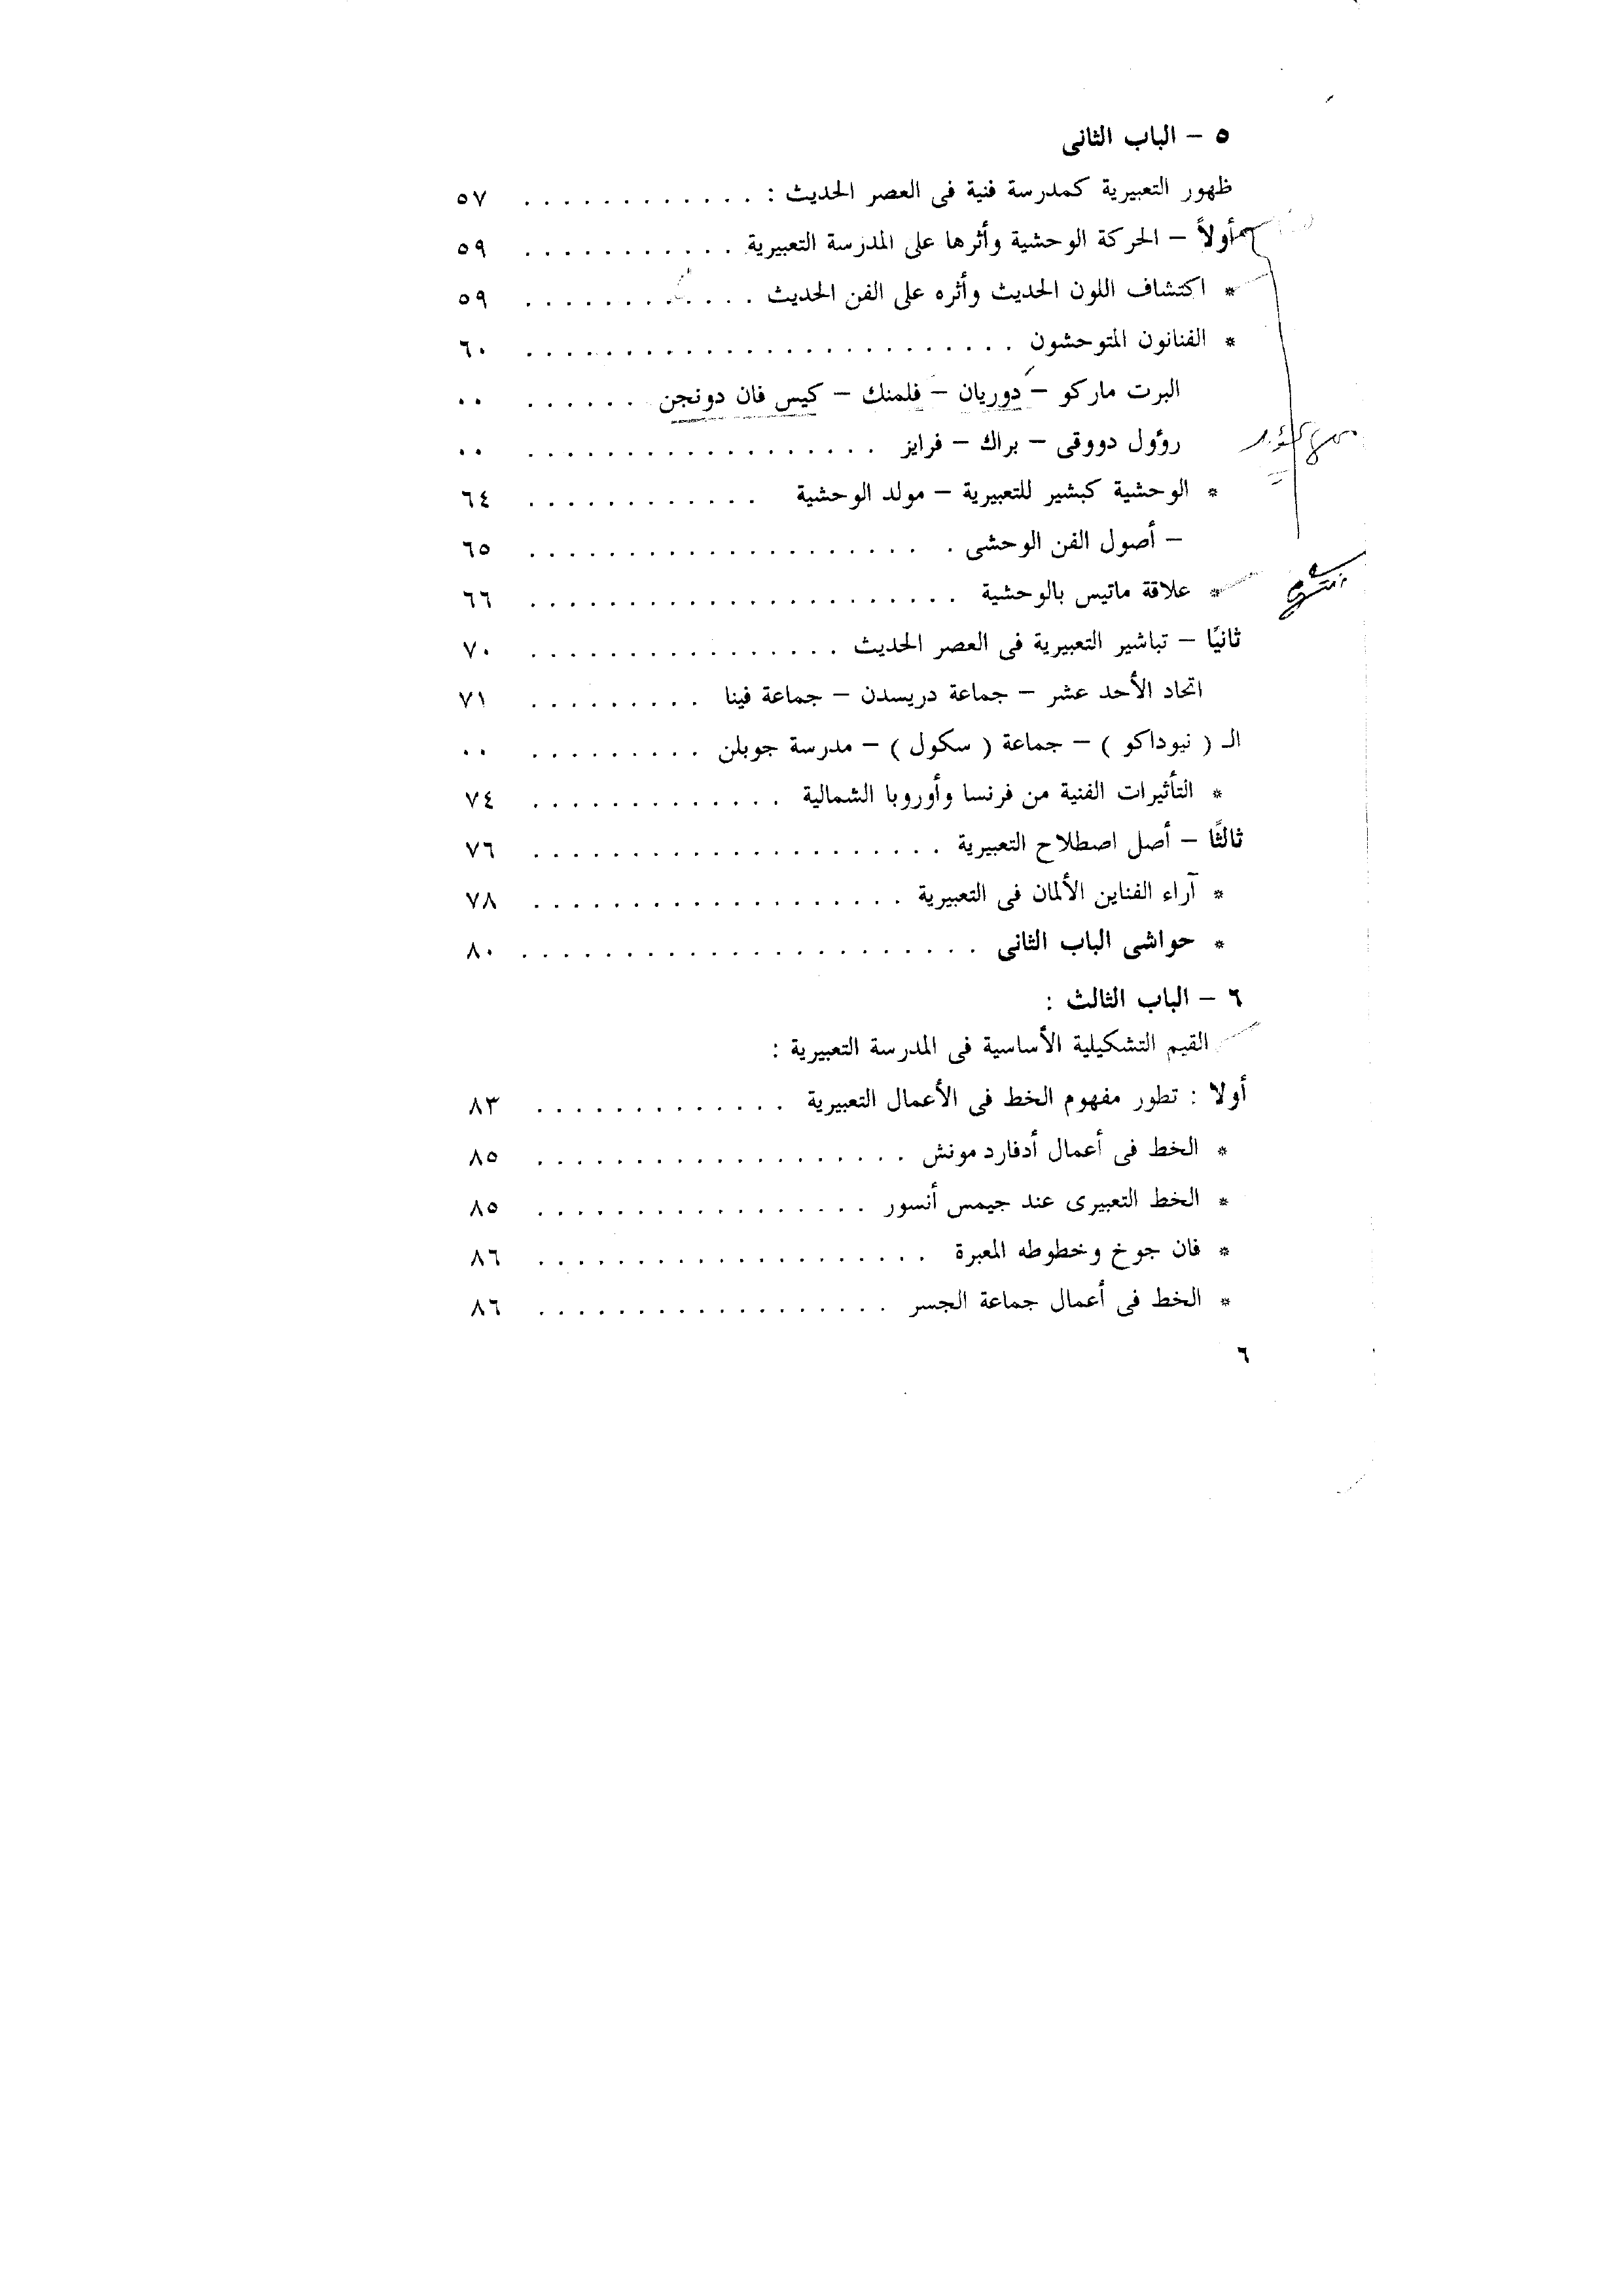 ٥ – الباب الثانى
ظهور التعبيرية كمدرسة فنية فى العصر الحديث : . . . . . . . . . . . . ٥٧
أولاً – الحركة الوحشية وأثرها على المدرسة التعبيرية . . . . . . . . . . . ٥٩
* اكتشاف اللون الحديث وأثره على الفن الحديث . . . . . . . . . . . . ٥٩
* الفنانون المتوحشون . . . . . . . . . . . . . . . . . . . . . . . . . ٦٠
البرت ماركو – دوريان – فلمنك – كيس فان دونجن . . . . . . ٠٠
رؤول دووقى – براك – فرايز . . . . . . . . . . . . . . . . . . ٠٠
* الوحشية كبشير للتعبيرية – مولد الوحشية . . . . . . . . . . . . ٦٤
– أصول الفن الوحشى . . . . . . . . . . . . . . . . . . . . . ٦٥
* علاقة ماتيس بالوحشية . . . . . . . . . . . . . . . . . . . . . . ٦٦
ثانيًا – تباشير التعبيرية فى العصر الحديث . . . . . . . . . . . . . . . . ٧٠
اتحاد الأحد عشر – جماعة دريسدن – جماعة فينا . . . . . . . . . ٧١
الـ ( نيوداكو ) – جماعة ( سكول ) – مدرسة جوبلن . . . . . . . . . ٠٠
* التأثيرات الفنية من فرنسا وأوروبا الشمالية . . . . . . . . . . . . . ٧٤
ثالثًا – أصل اصطلاح التعبيرية . . . . . . . . . . . . . . . . . . . . . ٧٦
* آراء الفناين الألمان فى التعبيرية . . . . . . . . . . . . . . . . . . . ٧٨
* حواشى الباب الثانى . . . . . . . . . . . . . . . . . . . . . . . ٨٠
٦ – الباب الثالث :
القيم التشكيلية الأساسية فى المدرسة التعبيرية :
أولا : تطور مفهوم الخط فى الأعمال التعبيرية . . . . . . . . . . . . . ٨٣
* الخط فى أعمال أدفارد مونش . . . . . . . . . . . . . . . . . . . ٨٥
* الخط التعبيرى عند جيمس أنسور . . . . . . . . . . . . . . . . . ٨٥
* فان جوخ وخطوطه المعبرة . . . . . . . . . . . . . . . . . . . . ٨٦
* الخط فى أعمال جماعة الجسر . . . . . . . . . . . . . . . . . . ٨٦
٦